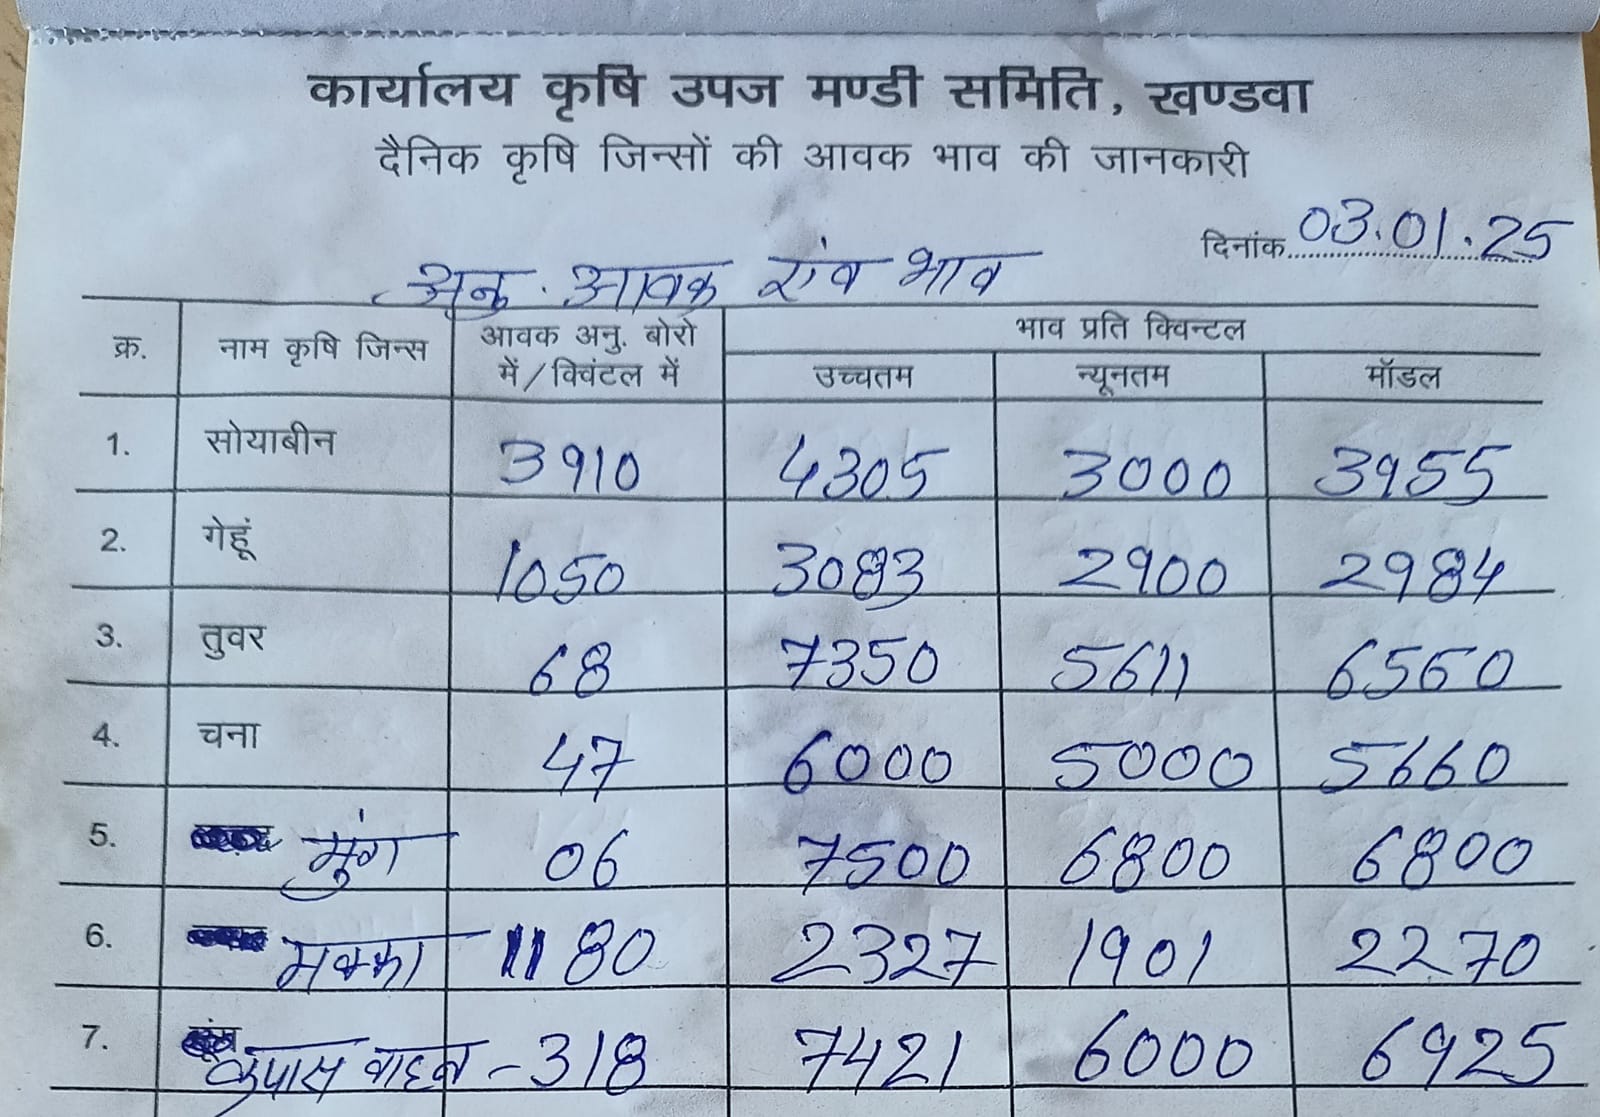 कार्यालय कृषि उपज मण्डी समिति, खण्डवा
दैनिक कृषि जिन्सों की आवक भाव की जानकारी
दिनांक 03.01.25
अनु. आवक एंव भाव
क्र. नाम कृषि जिन्स आवक अनु. बोरो में / क्विंटल में भाव प्रति क्विन्टल
उच्चतम न्यूनतम मॉडल
1. सोयाबीन 3910 4305 3000 3955
2. गेहूं 1050 3083 2900 2984
3. तुवर 68 7350 5611 6560
4. चना 47 6000 5000 5660
5. मुंग 06 7500 6800 6800
6. मक्का 1180 2327 1901 2270
7. कपास वाहन - 318 7421 6000 6925